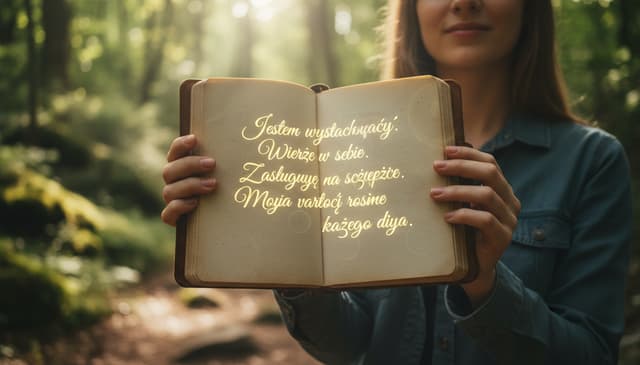 Jestem wystachwąćy.
Wierzę w sebie.
Zasługuję na sczęężte.
Moyia vartocj rosine
każego dıya.